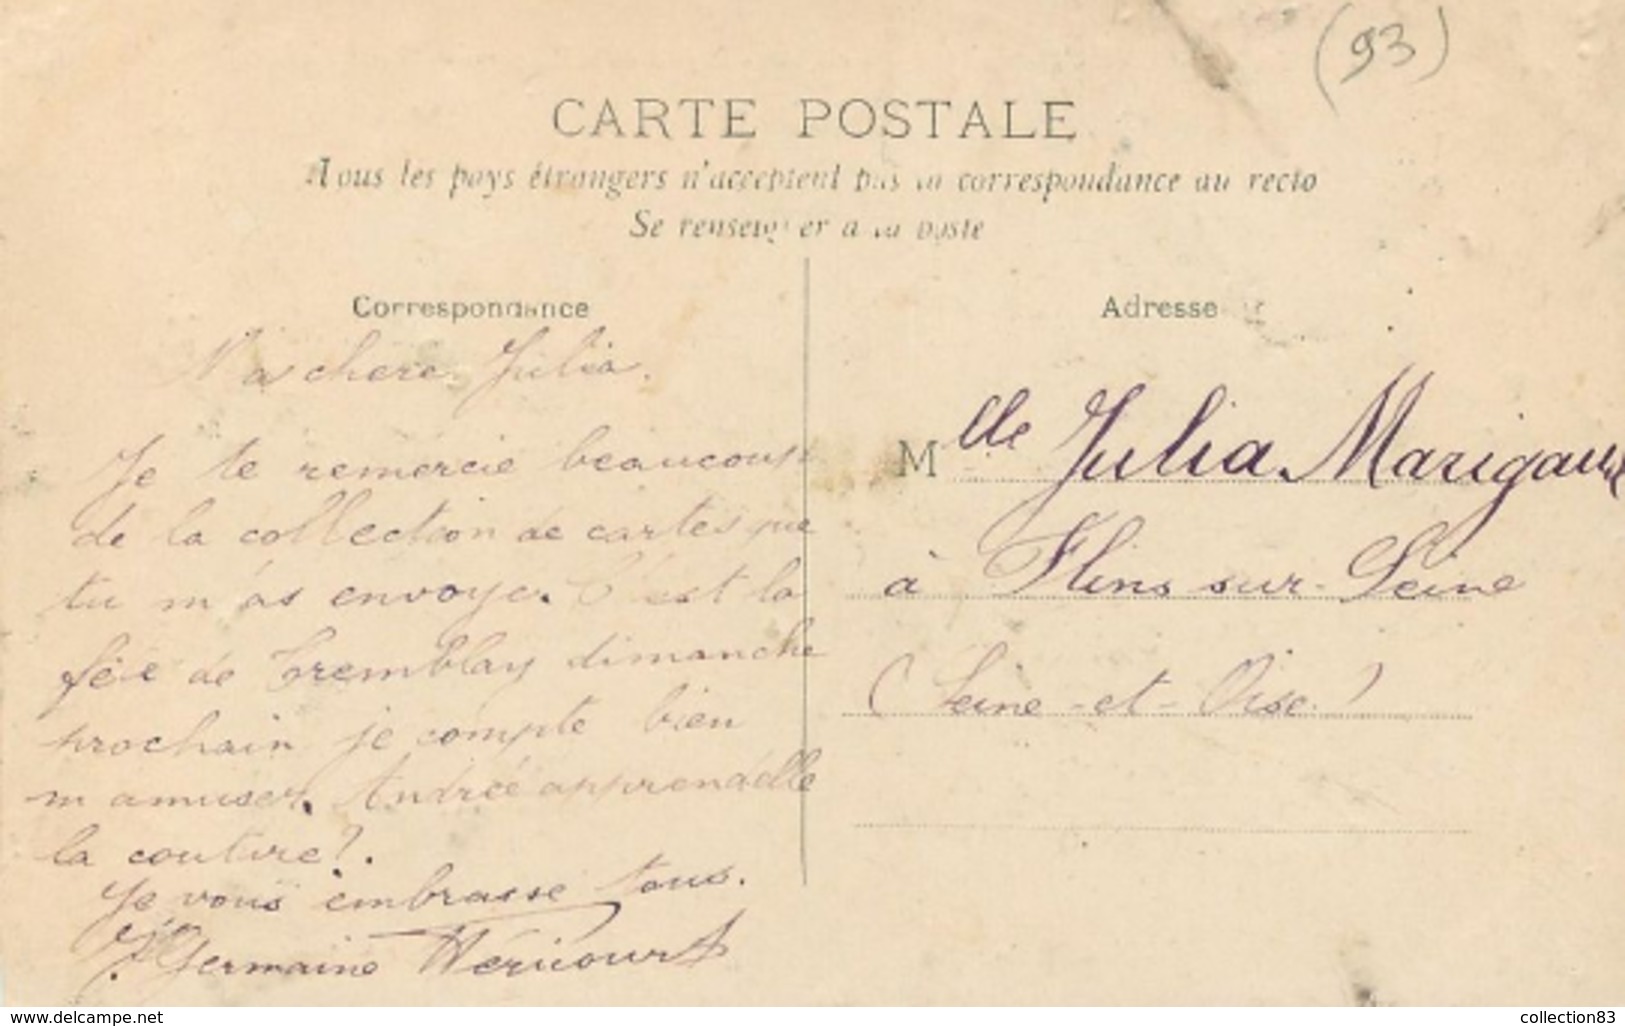 (93)
CARTE POSTALE
Tous les pays étrangers n'acceptent pas la correspondance au recto
Se renseigner à la poste
Correspondance
Ma chère Julia.
Je te remercie beaucoup
de la collection de cartes que
tu m'as envoye. C'est la
fête de Tremblay dimanche
prochain je compte bien
m amuser. Andrée apprend elle
la couture?.
Je vous embrasse tous.
Germaine Héricourt
Adresse
Mlle Julia Marigaux
à Flins sur-Seine
(Seine-et-Oise)
www.delcampe.net
collection83